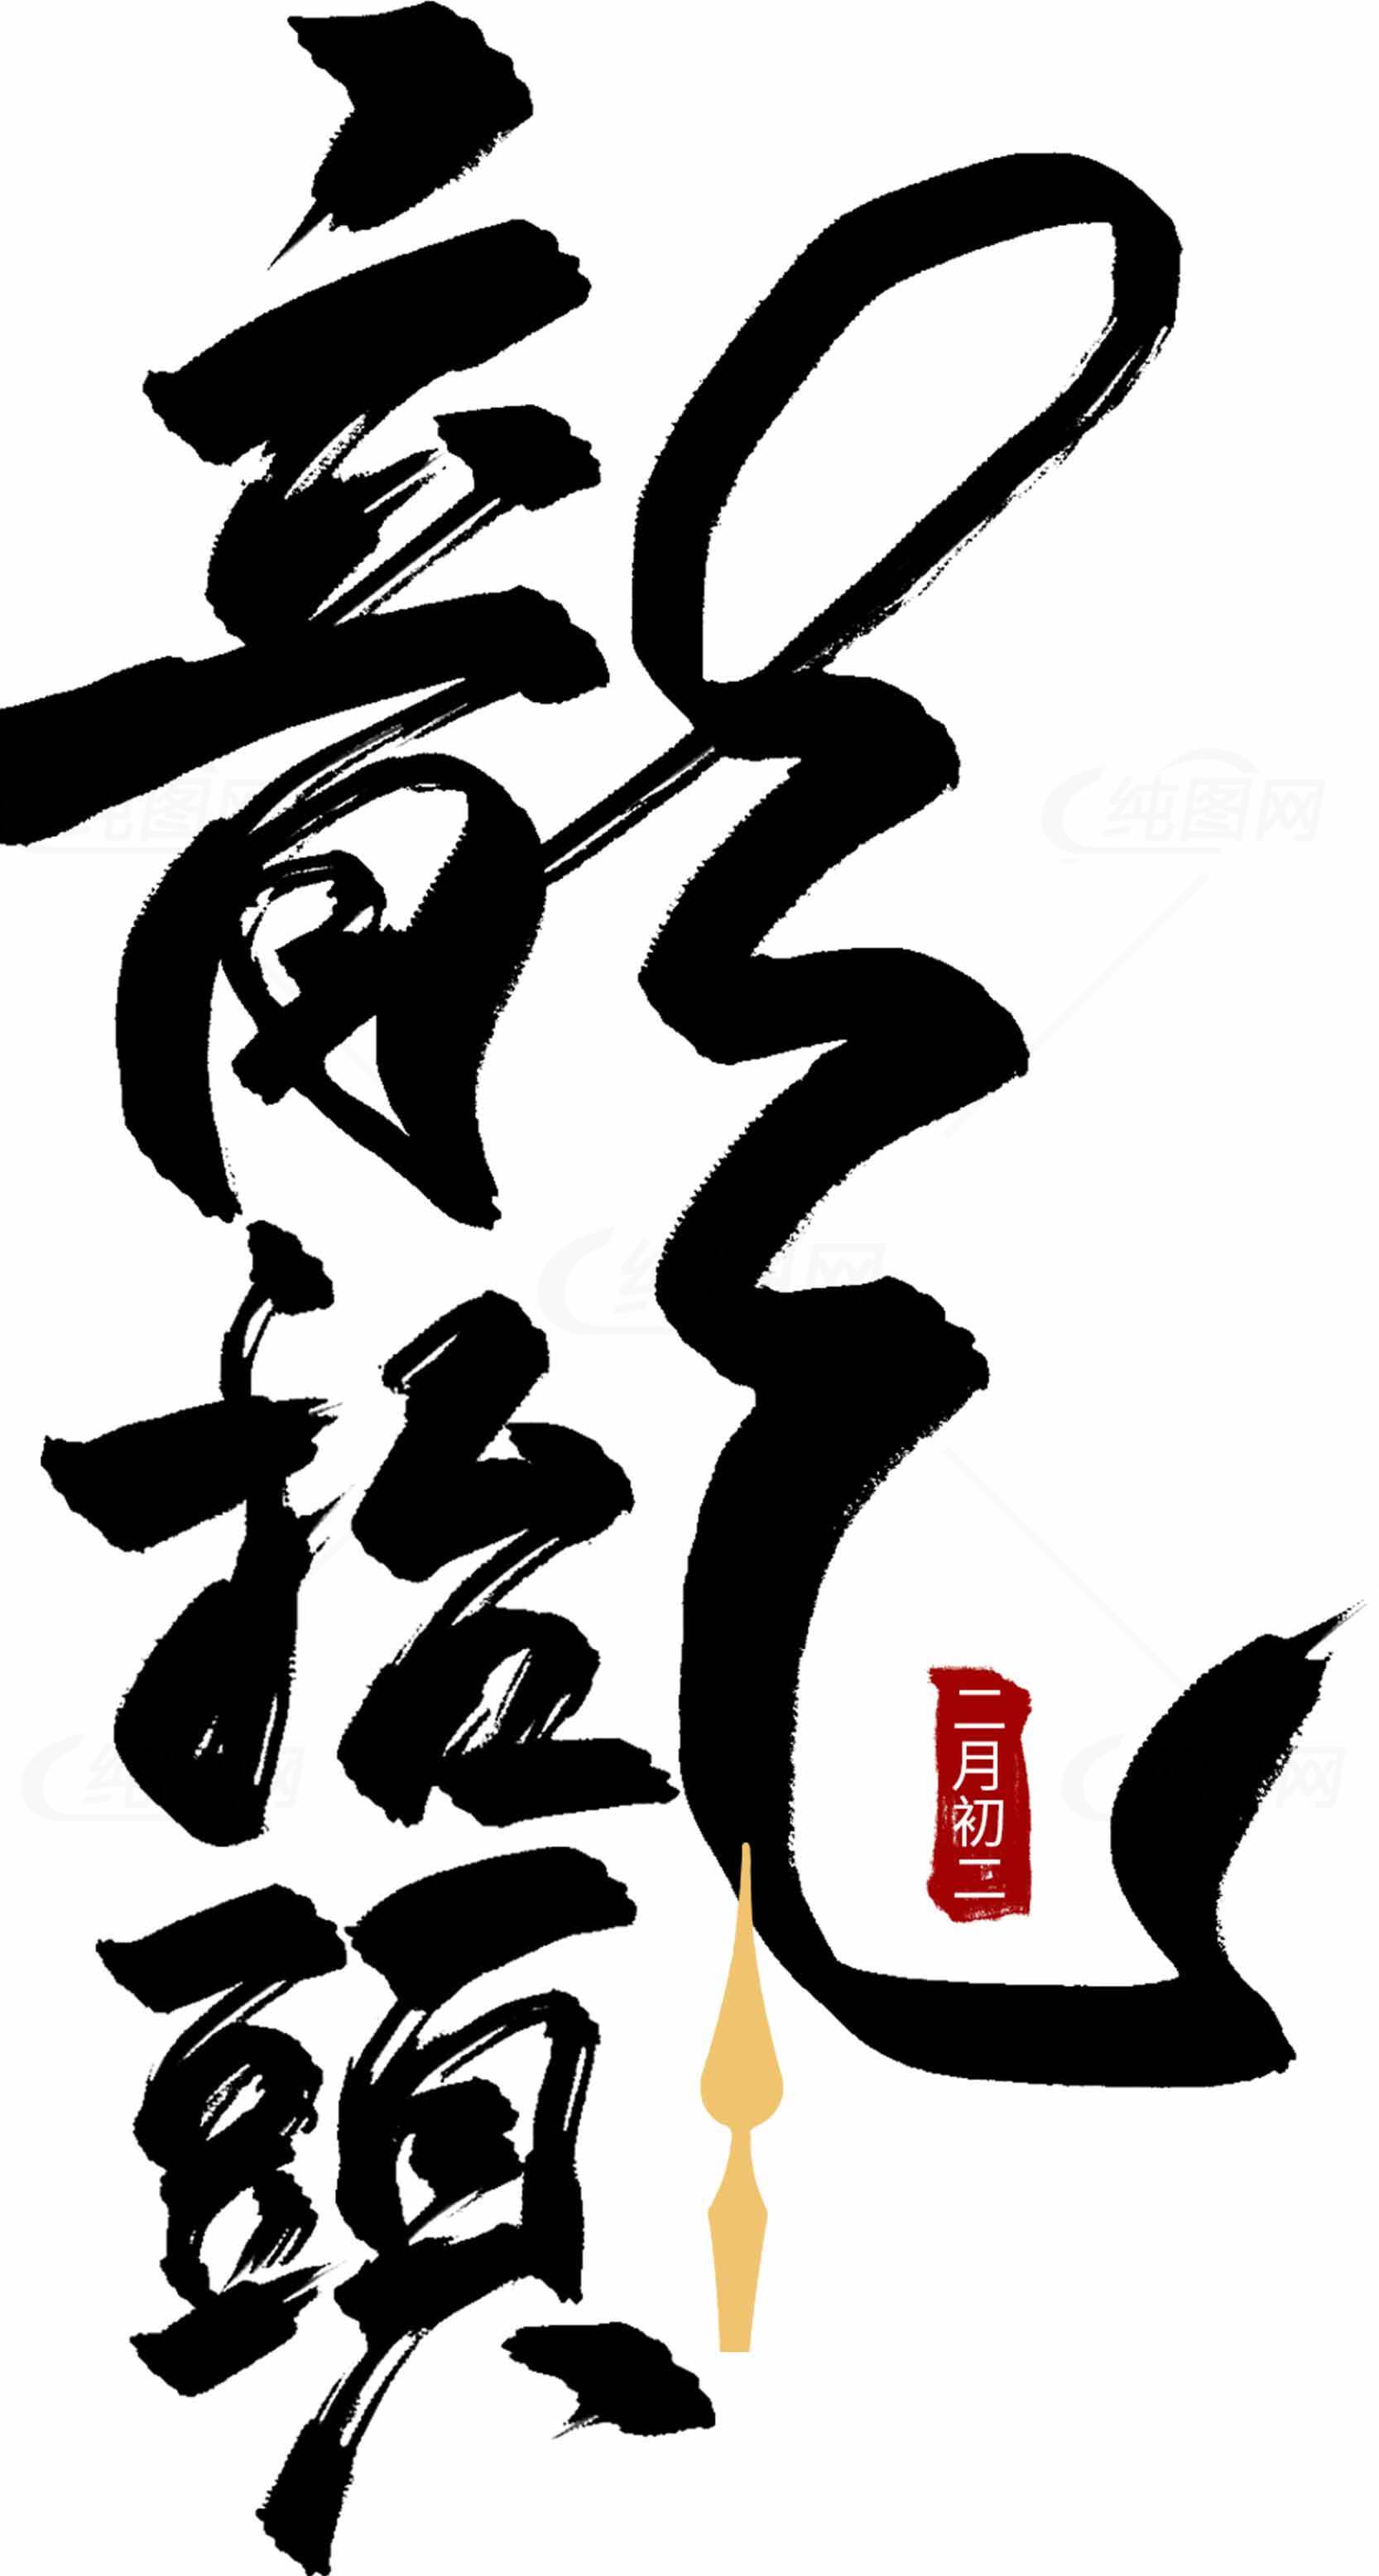 龍抬頭
二月初二
纯图网
纯图网
纯图网
纯图网
纯图网